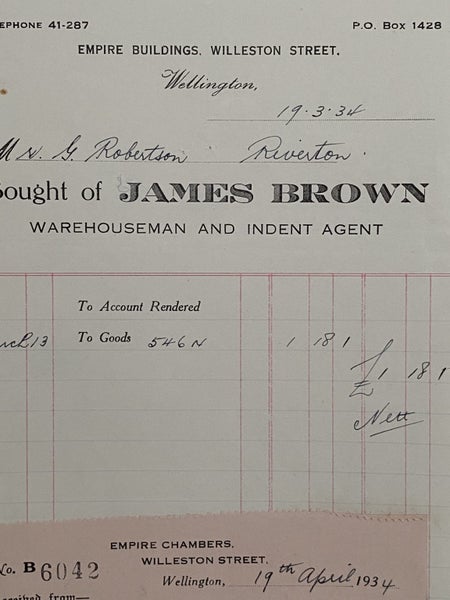 EPHONE 41-287 P.O. Box 1428
EMPIRE BUILDINGS, WILLESTON STREET.
Wellington,
19.3.34
Mr. G. Robertson Riverton.
Bought of JAMES BROWN
WAREHOUSEMAN AND INDENT AGENT
To Account Rendered
rch 13 To Goods 546N 1 18 1
£1 18 1
Nett
EMPIRE CHAMBERS,
No. B 6042 WILLESTON STREET,
Wellington, 19th April 1934
ceived from—